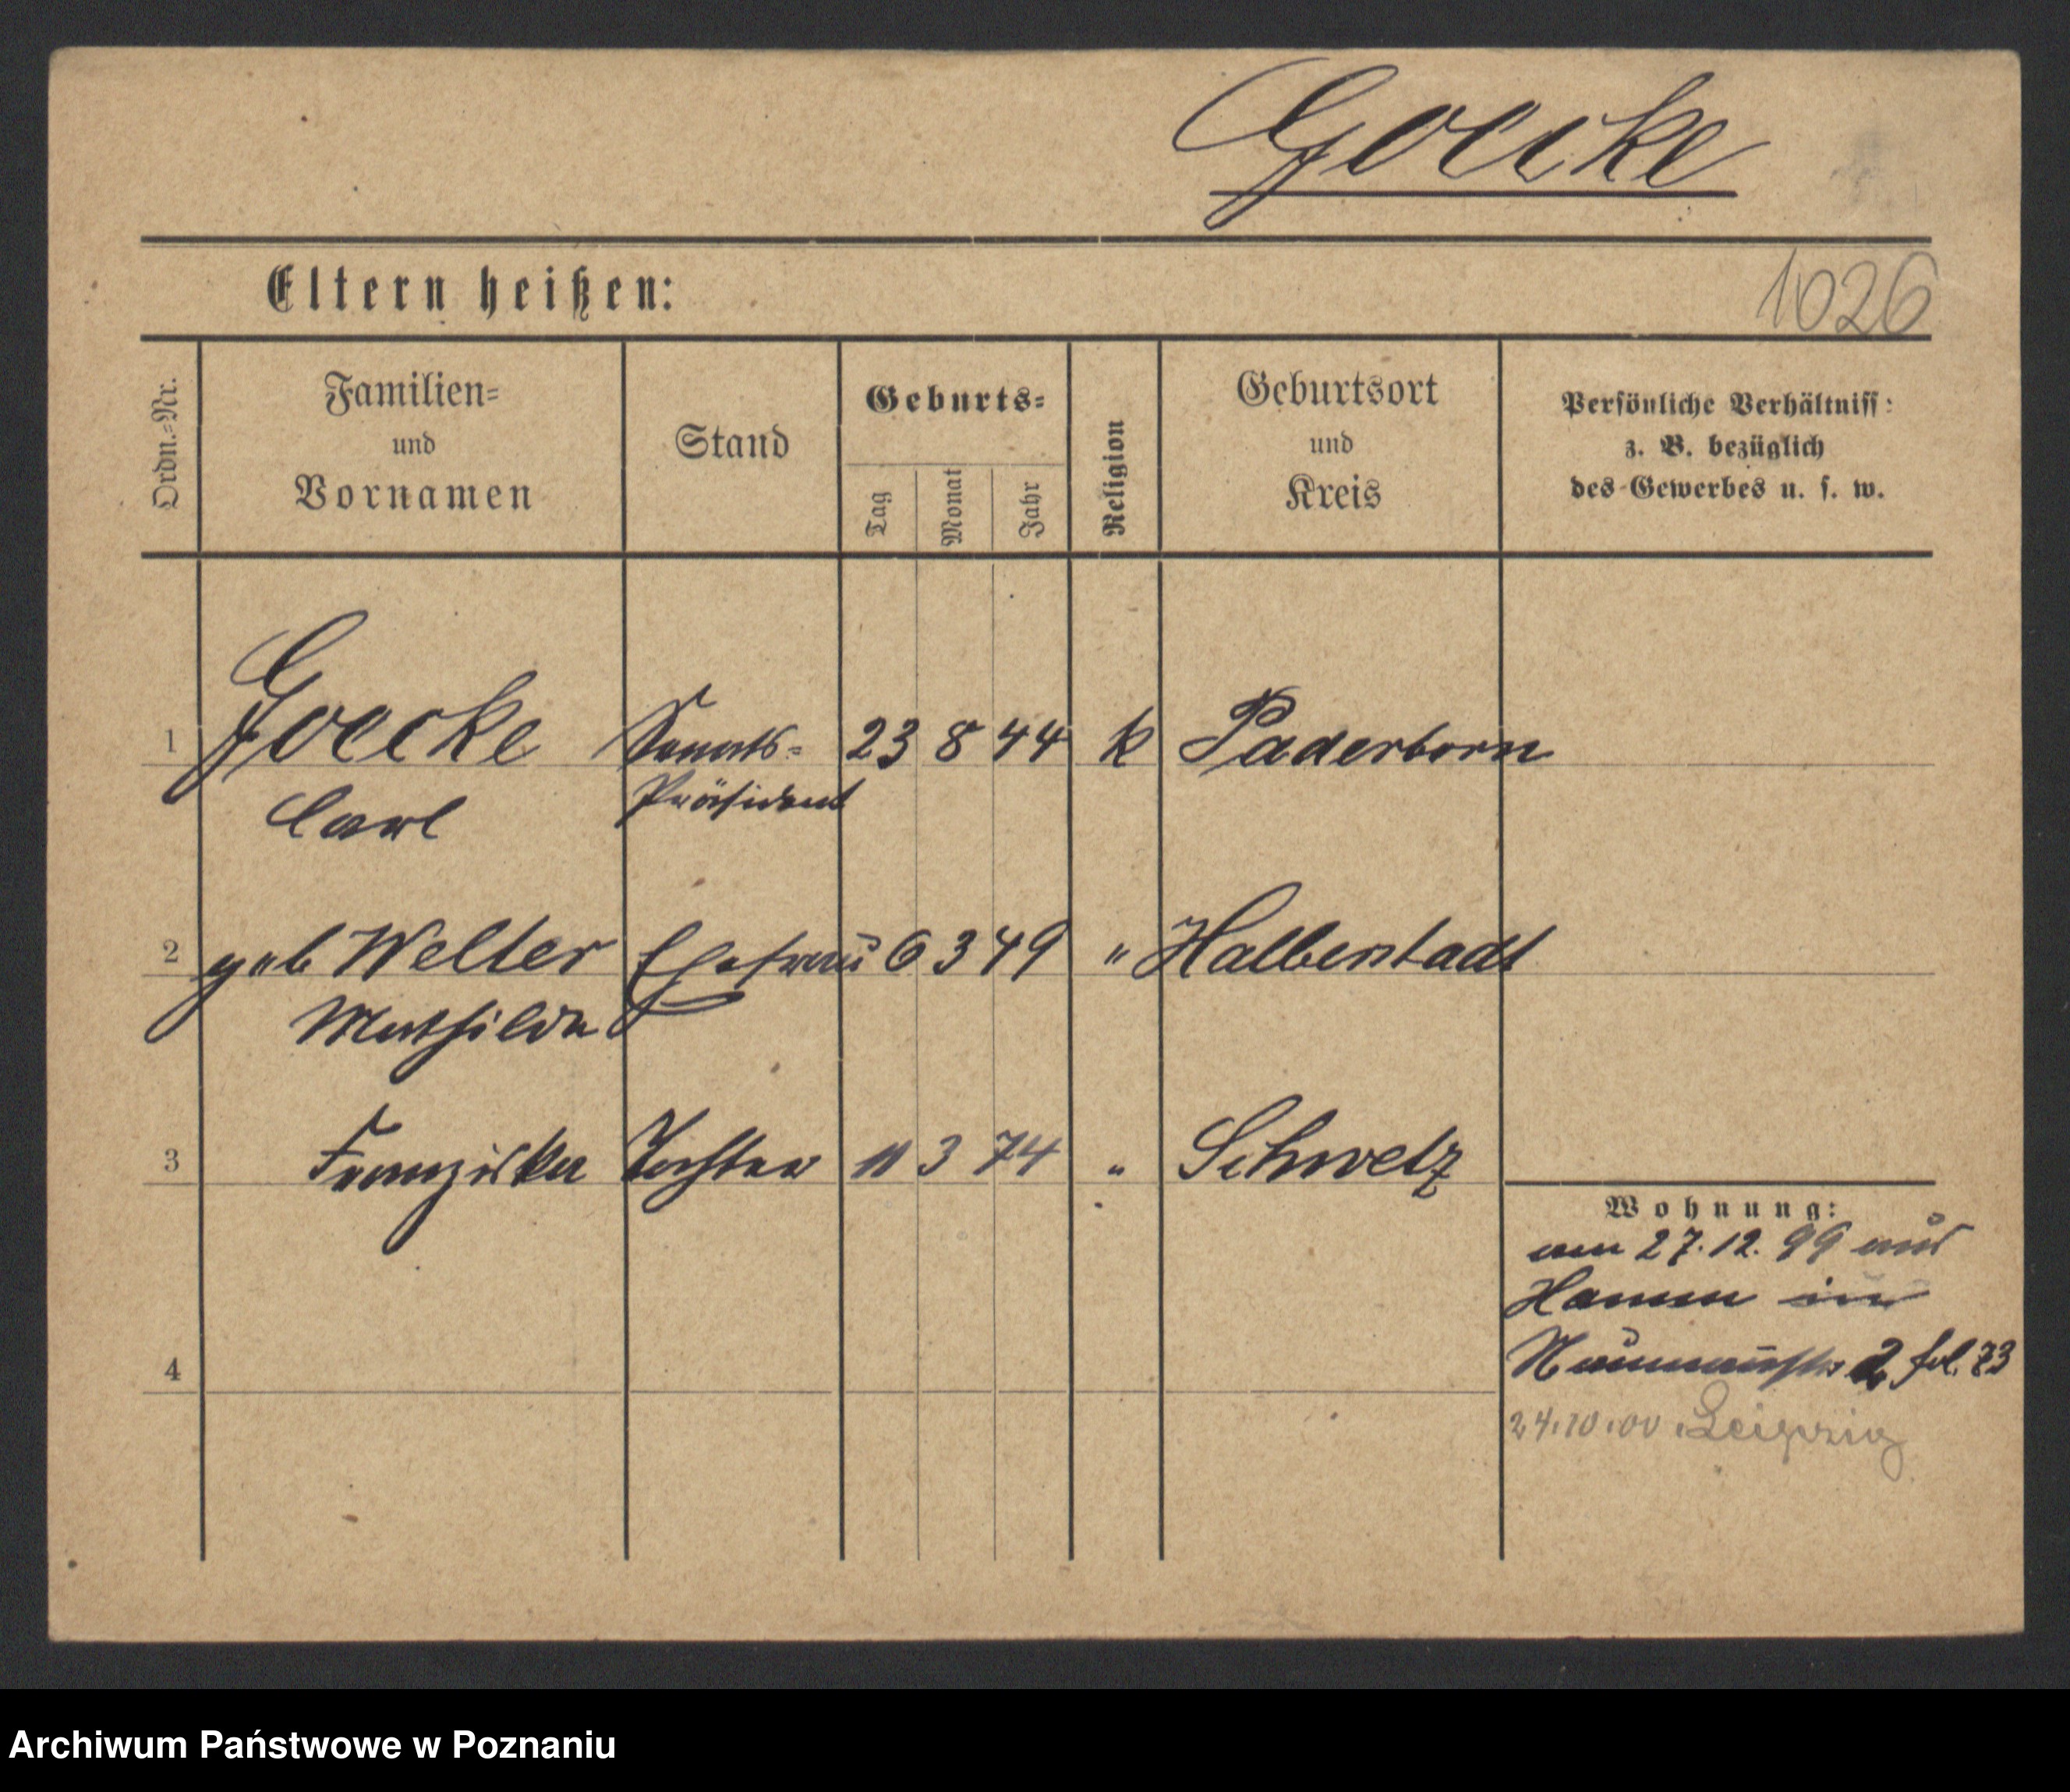 Goecke
Eltern heißen:
1026
Ordn.-Nr.
Familien-
und
Vornamen
Stand
Geburts-
Tag
Monat
Jahr
Religion
Geburtsort
und
Kreis
Persönliche Verhältniss:
z. B. bezüglich
des Gewerbes u. s. w.
1 Goecke Senats- 23 8 44 k Paderborn
Carl Präsident
2 geb Welter Ehefrau 6 3 49 " Halberstadt
Mathilde
3 Franziska Tochter 11 3 74 " Schwetz
Wohnung:
am 27.12.99 aus
Hamm in
Naumannstr 2 fol. 73
4
24.10.00 Leipzig
Archiwum Państwowe w Poznaniu